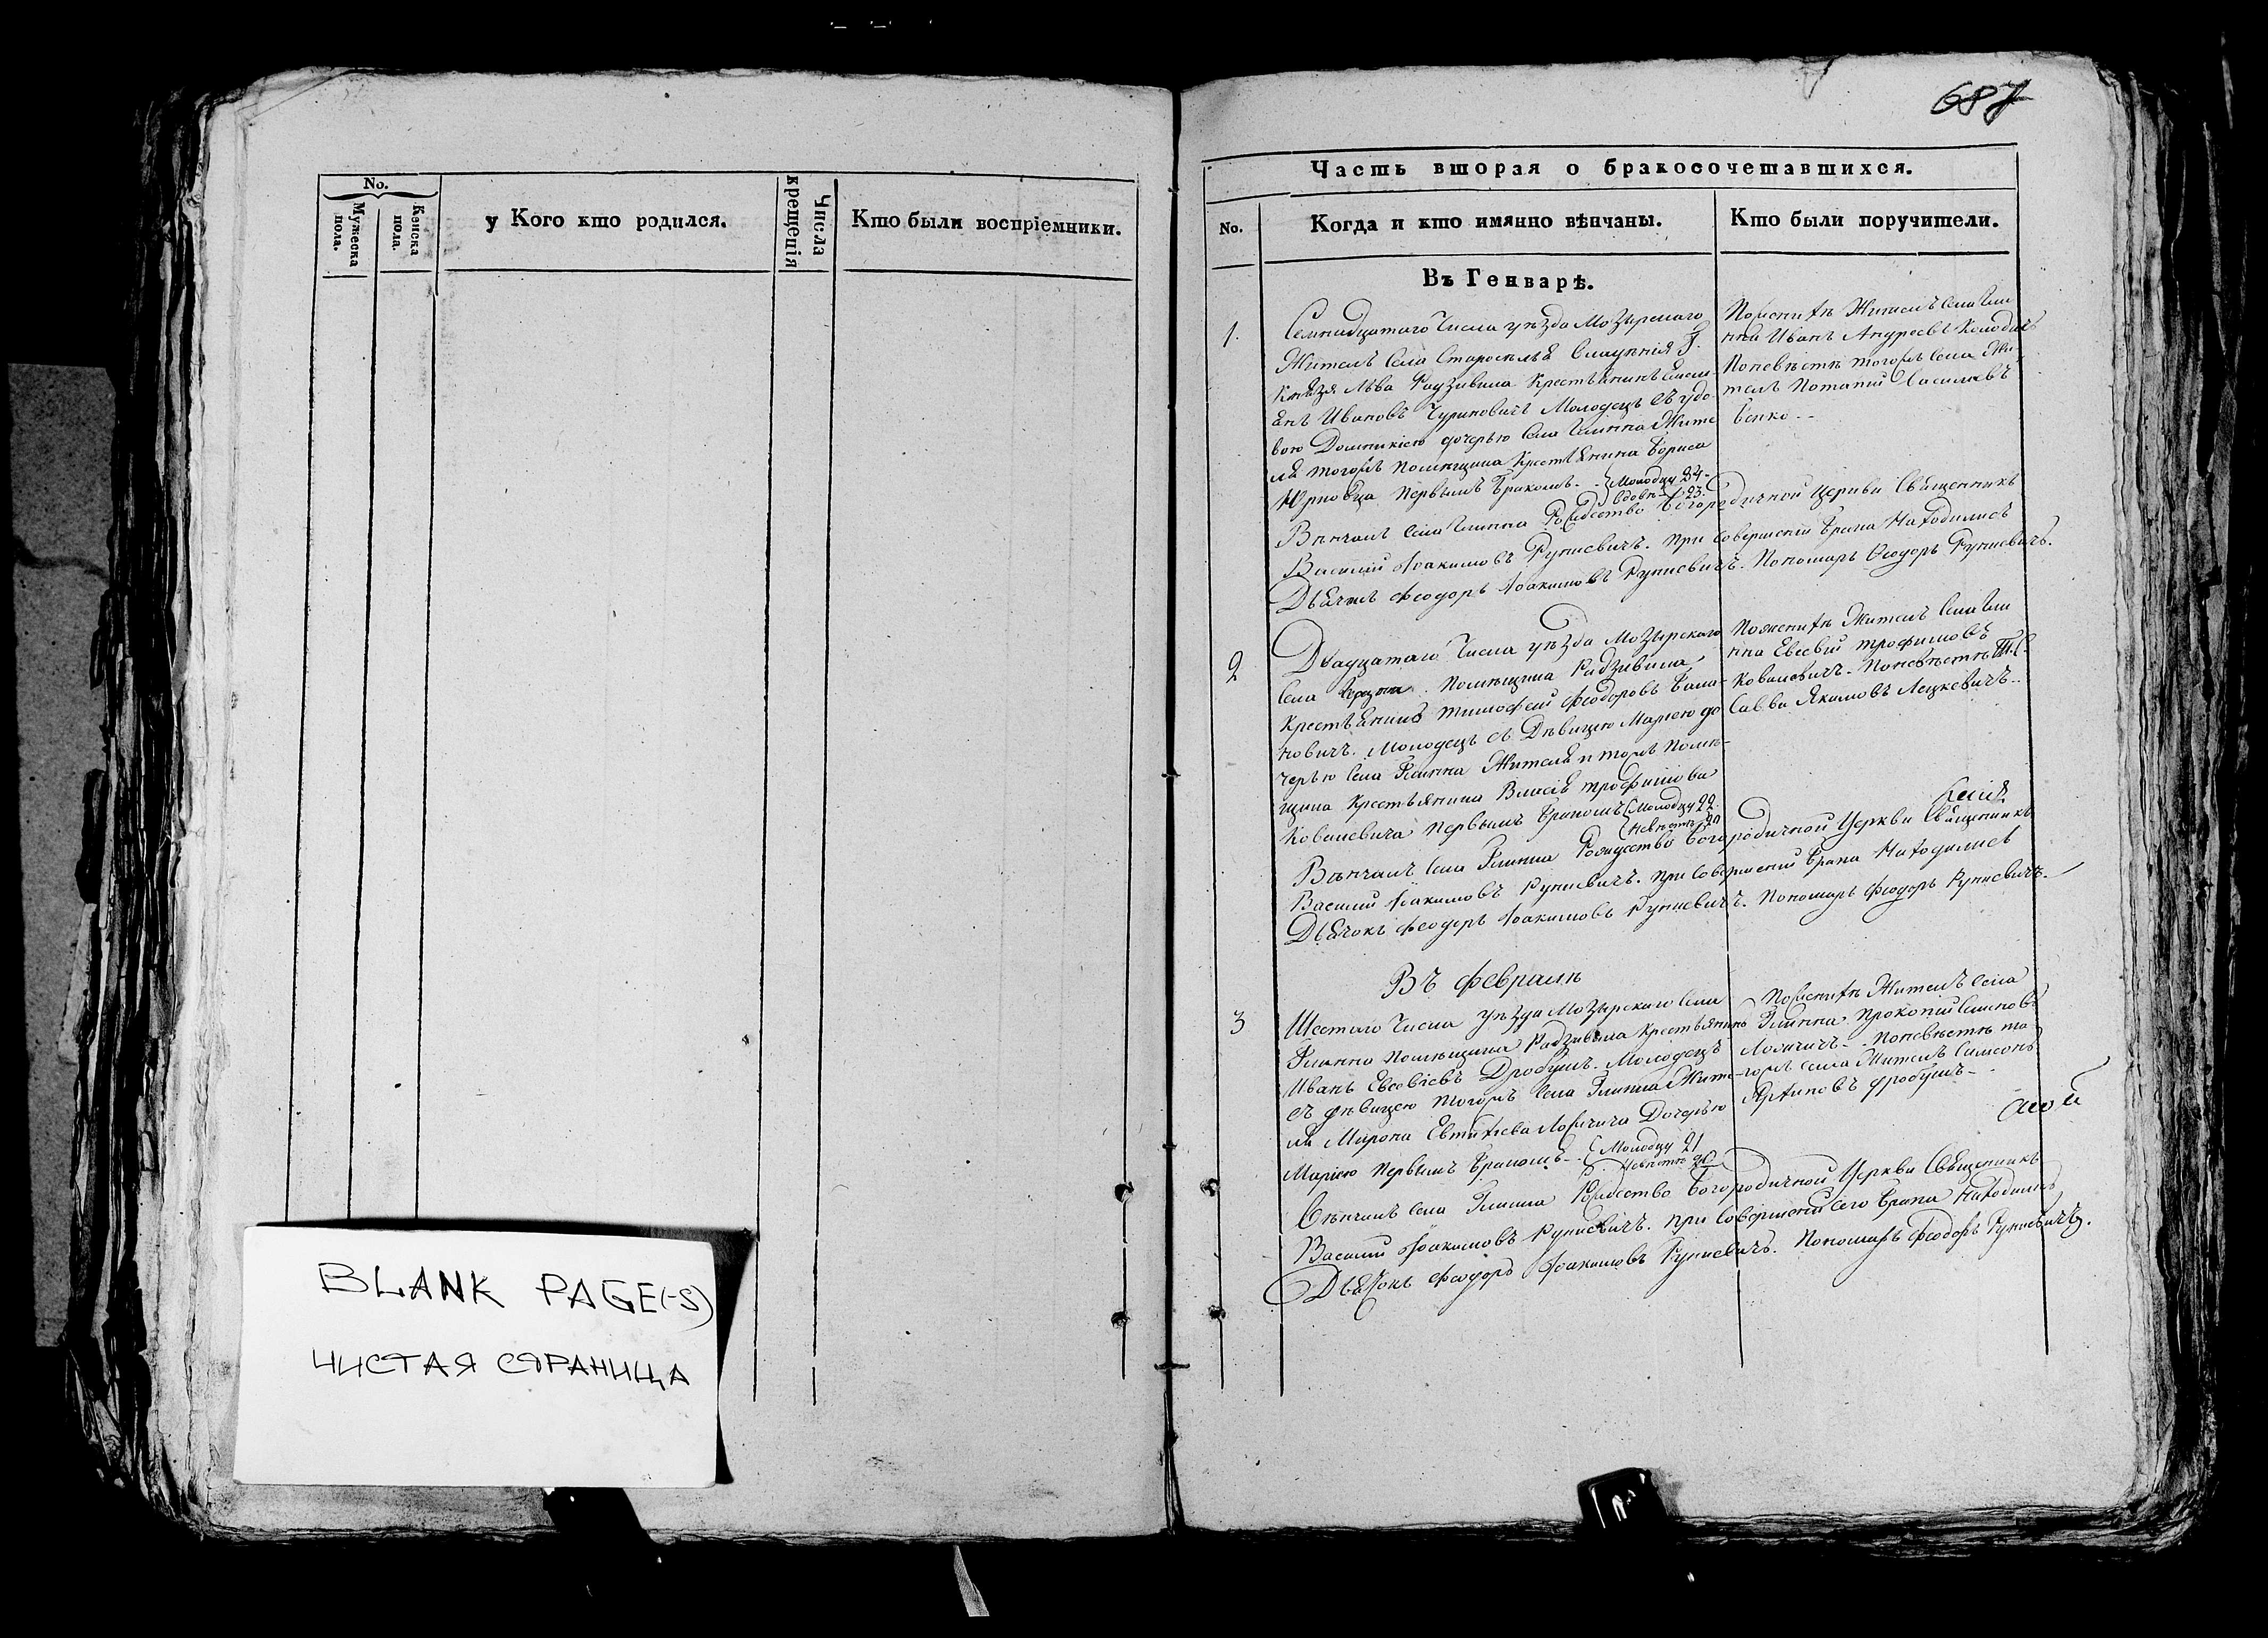 687
No.
Мужеска пола.
Женска пола.
у Кого кто родился.
Числа крещенія
Кто были воспріемники.
BLANK PAGE(-S)
ЧИСТАЯ СТРАНИЦА
Часть вторая о бракосочетавшихся.
No.
Когда и кто имянно вѣнчаны.
Кто были поручители.
Въ Генварѣ.
1.
Семнадцатаго Числа уѣзда Мозырскаго
Житель Села
Князя Льва Радзивила Крестьянинъ
Ивановъ Молодецъ съ вдо-
вою Домникіею дочерью Села Глинна Жите
ля тогожъ помѣщика Крестьянина Бориса
Первымъ бракомъ. Молодцу 24.
вдовѣ 23.
Вѣнчалъ Села Глинна Рождество Богородичной Церкви Священникъ
Василій Іоакимовъ Рункевичъ. При Совершеніи брака Находились
Дьячекъ Феодоръ Іоакимовъ Рункевичъ. Пономарь Феодоръ Рункевичъ.
По женихѣ Житель Села Гли
нна Иванъ Андреевъ
По невѣстѣ тогожъ Села Жи-
тель Потапій
2
Двадцатаго Числа уѣзда Мозырскаго
Села Помѣщика Радзивила
Крестьянинъ Тимофей Феодоровъ
новичъ. Молодецъ съ Дѣвицею Маріею до
черью Села Глинна Жителя и тогожъ помѣ-
щика Крестьянина Власія Трофимова
Ковалевича Первымъ бракомъ Молодцу 22.
Невѣстѣ 20
Вѣнчалъ Села Глинна Рождество Богородичной Церкви Священникъ
Василій Іоакимовъ Рункевичъ. При Совершеніи брака Находились
Дьячокъ Феодоръ Іоакимовъ Рункевичъ. Пономарь Феодоръ Рункевичъ.
По женихѣ Житель Села Гли
нна Евсевій Трофимовъ
Ковалевичъ. По невѣстѣ
Савва Якимовъ Лецкевичъ.
Въ Февралѣ
3
Шестаго Числа уѣзда Мозырскаго Села
Глинна Помѣщика Радзивила Крестьянинъ
Иванъ Евсевіевъ Дробушъ. Молодецъ
съ дѣвицею тогожъ Села Глинна Жите-
ля Мирона Ложичича Дочерью
Маріею Первымъ бракомъ Молодцу 21
Невѣстѣ
Вѣнчалъ Села Глинна Рождество Богородичной Церкви Священникъ
Василій Іоакимовъ Рункевичъ. При Совершеніи сего брака Находились
Дьячокъ Феодоръ Іоакимовъ Рункевичъ. Пономарь Феодоръ Рункевичъ.
По женихѣ Житель Села
Глинна Прокопій Семиновъ
По невѣстѣ то
гожъ Села Житель Симеонъ
Дробушъ